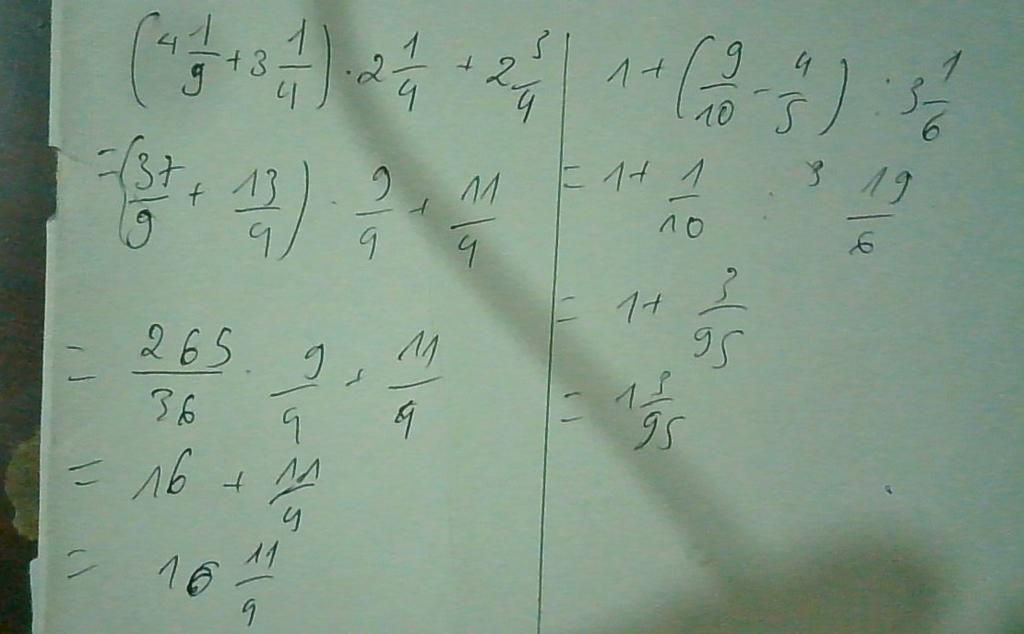 (4 1/9 + 3 1/4) . 2 1/4 + 2 3/4
= (37/9 + 13/4) . 9/4 + 11/4
= 265/36 . 9/4 + 11/4
= 16 + 11/4
= 16 11/4
1 + (9/10 - 4/5) : 3 1/6
= 1 + 1/10 : 19/6
= 1 + 3/95
= 1 3/95